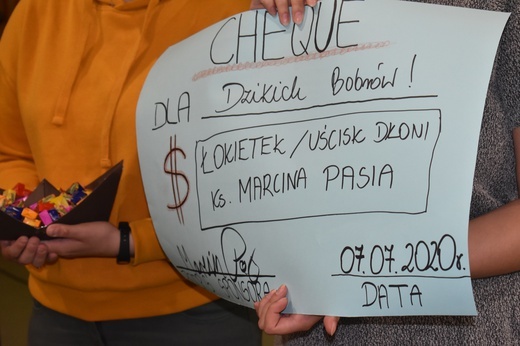 CHEQUE
DLA Dzikich Bobrów!
$ ŁOKIETEK/UŚCISK DŁONI
Ks. MARCINA PASIA
07.07.2020r.
DATA